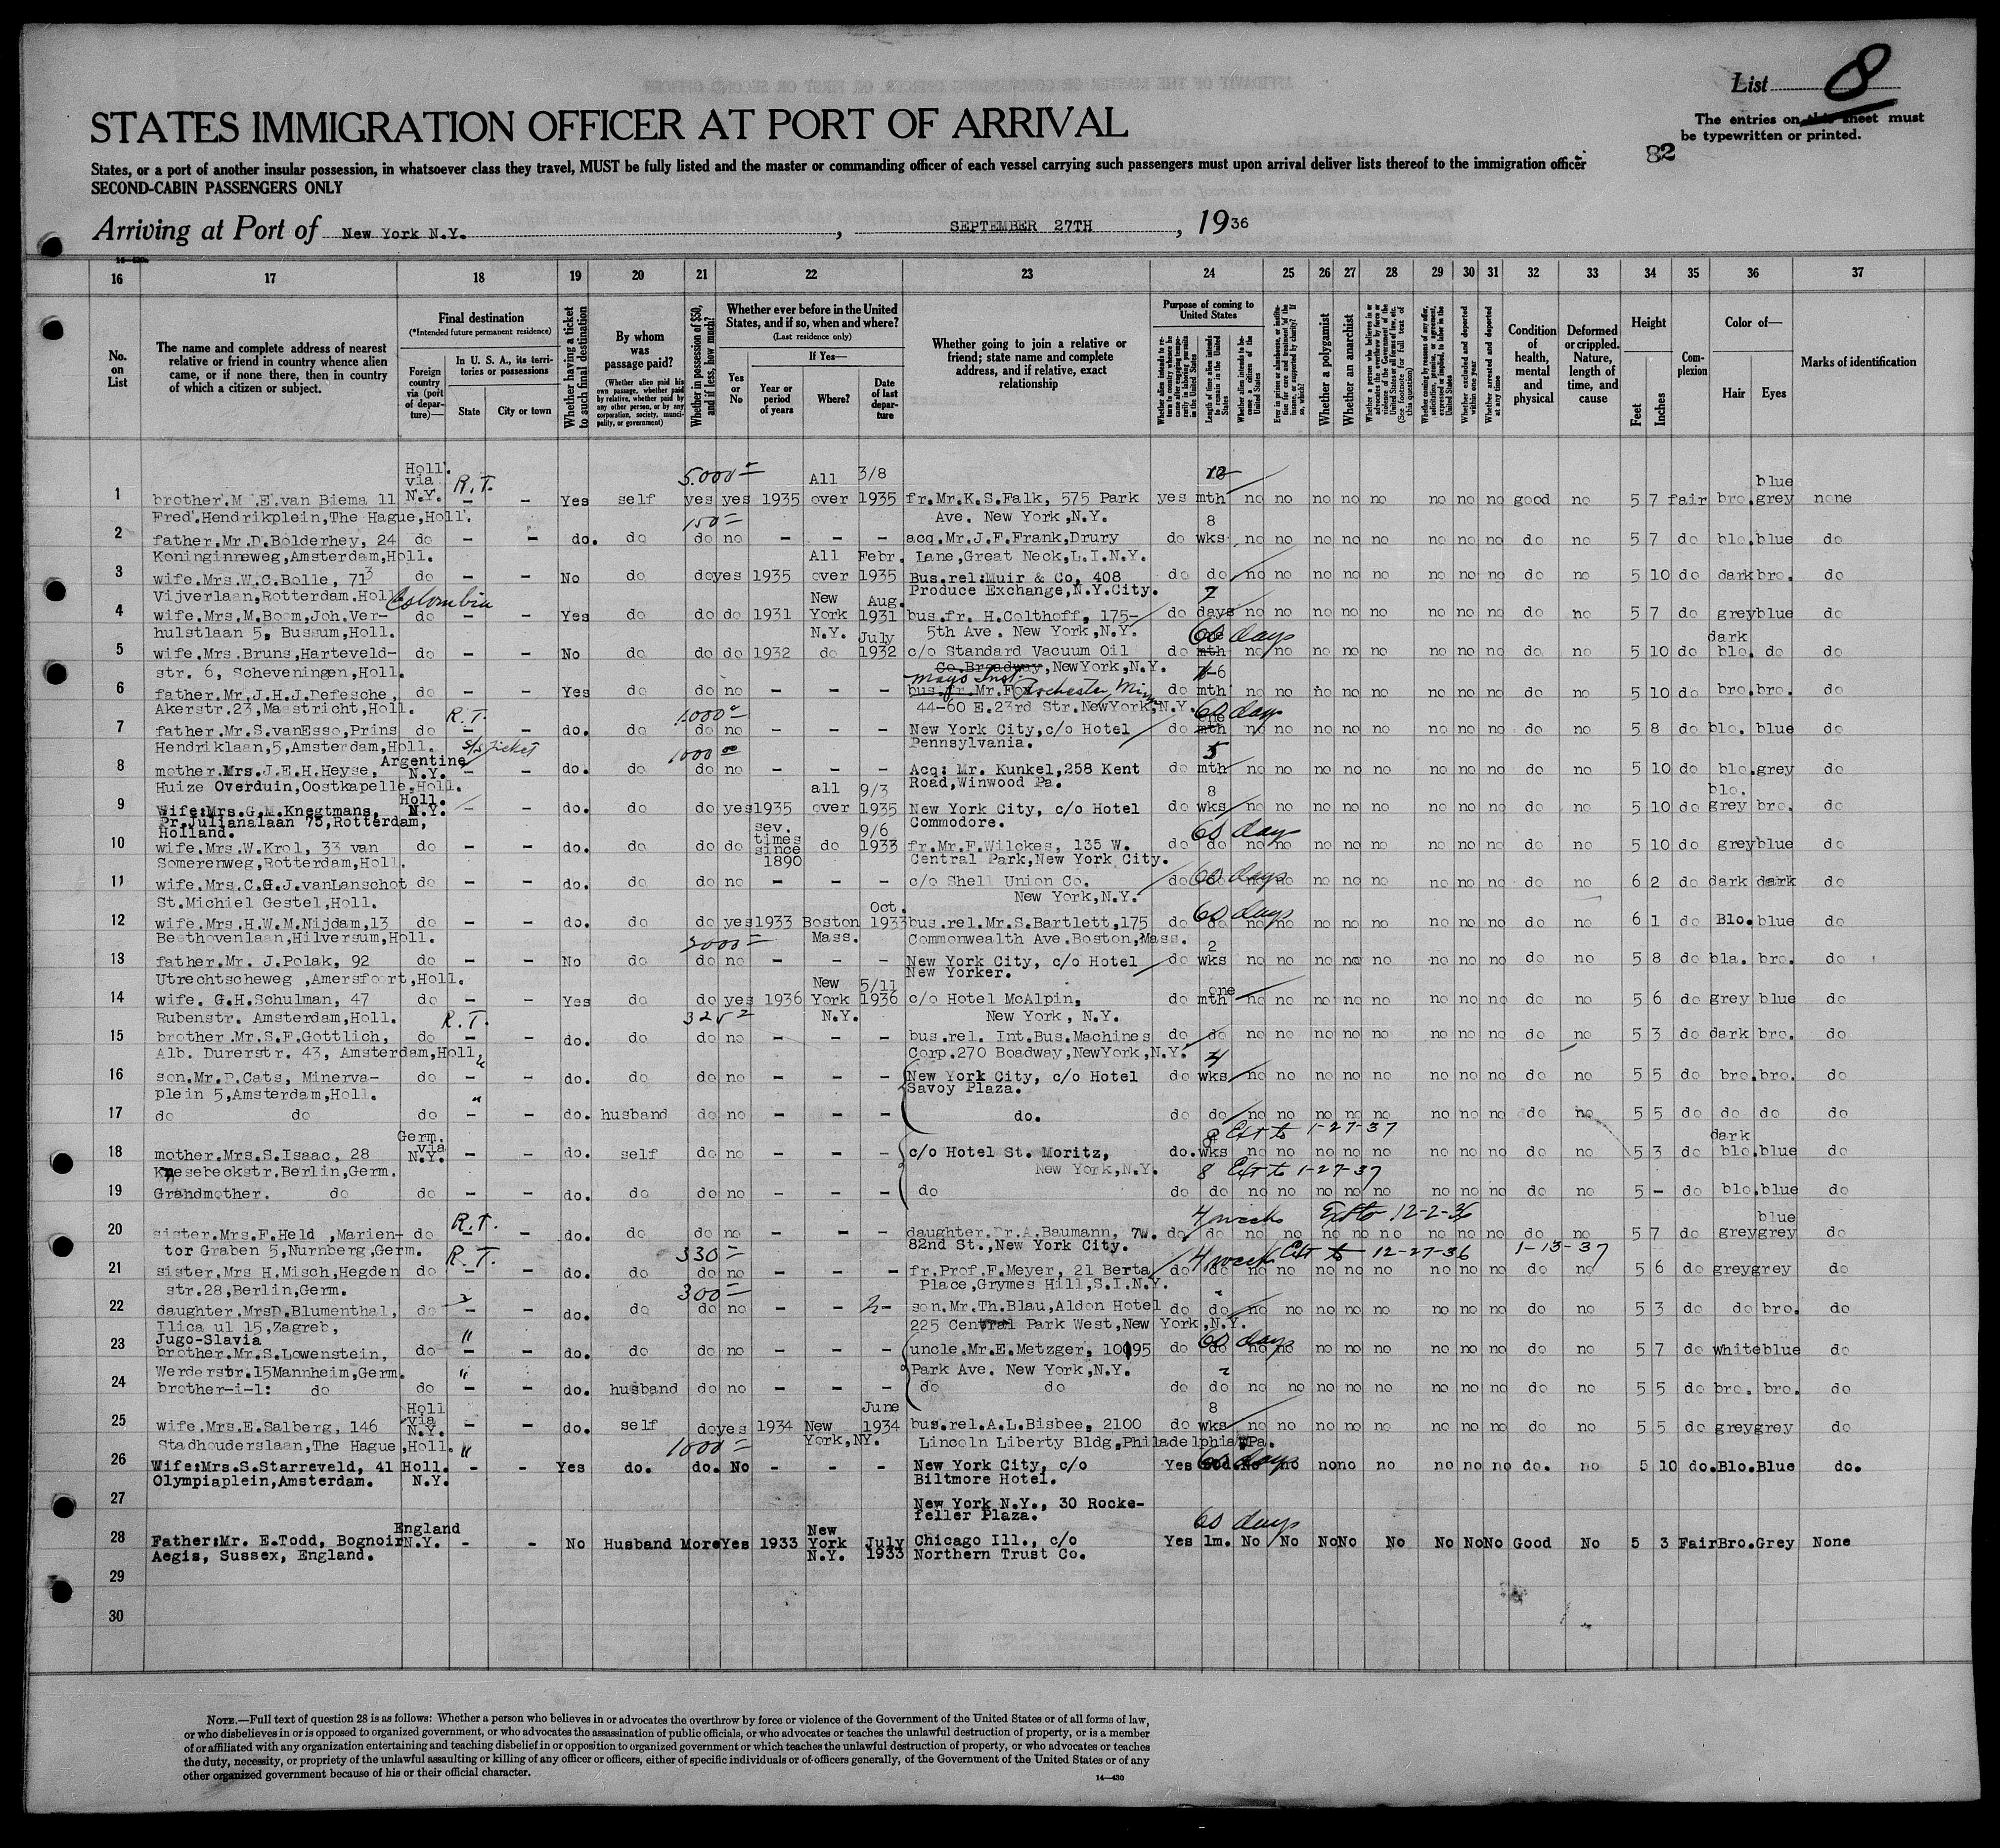 List 8
The entries on this sheet must
be typewritten or printed.
82
STATES IMMIGRATION OFFICER AT PORT OF ARRIVAL
States, or a port of another insular possession, in whatsoever class they travel, MUST be fully listed and the master or commanding officer of each vessel carrying such passengers must upon arrival deliver lists thereof to the immigration officer
SECOND-CABIN PASSENGERS ONLY
Arriving at Port of New York N.Y. , SEPTEMBER 27TH , 1936
16 17 18 19 20 21 22 23 24 25 26 27 28 29 30 31 32 33 34 35 36 37
No. on List
The name and complete address of nearest relative or friend in country whence alien came, or if none there, then in country of which a citizen or subject.
Final destination
(*Intended future permanent residence)
Foreign country via (port of departure)—
In U. S. A., its territories or possessions
State City or town
Whether having a ticket to such final destination
By whom was passage paid?
(Whether alien paid his own passage, whether paid by relative, whether paid by any other person, or by any corporation, society, municipality, or government)
Whether in possession of $50, and if less, how much?
Whether ever before in the United States, and if so, when and where?
(Last residence only)
Yes or No
If Yes—
Year or period of years Where? Date of last departure
Whether going to join a relative or friend; state name and complete address, and if relative, exact relationship
Purpose of coming to United States
Length of time alien intends to remain in the United States
Whether alien intends to become a citizen of the United States
Whether a polygamist
Whether an anarchist
Whether excluded and deported within one year
Whether arrested and deported at any time
Condition of health, mental and physical
Deformed or crippled. Nature, length of time, and cause
Height
Feet Inches
Complexion
Color of—
Hair Eyes
Marks of identification
Holl. via N.Y. R.T. 5.000 All 3/8 12 blue
1 brother.M.E.van Biema 11 - - Yes self yes yes 1935 over 1935 fr.Mr.K.S.Falk, 575 Park yes mth no no no no no no no no good no 5 7 fair bro. grey none
Fred.Hendrikplein,The Hague,Holl. 150 Ave. New York,N.Y. 8
2 father.Mr.D.Bolderhey, 24 do - - do. do do no - - - acq.Mr.J.F.Frank,Drury do wks no no no no no no no no do no 5 7 do blo. blue do
Koninginneweg,Amsterdam,Holl. All Febr. Lane,Great Neck,L.I.N.Y.
3 wife.Mrs.W.C.Bolle, 71 3 do - - No do do yes 1935 over 1935 Bus.rel:Muir & Co, 408 do do no no no no no no no no do no 5 10 do dark bro. do
Vijverlaan,Rotterdam.Holl Colombia New Aug. Produce Exchange,N.Y.City. 7
4 wife.Mrs.M.Boom,Joh.Ver- do - - Yes do do do 1931 York 1931 bus.fr. H.Colthoff, 175- do days no no no no no no no no do no 5 7 do grey blue do
hulstlaan 5, Bussum,Holl. N.Y. July 5th Ave. New York,N.Y. 60 days dark
5 wife.Mrs.Bruns,Harteveld- do - - No do do do 1932 do 1932 c/o Standard Vacuum Oil do mth no no no no no no no no do no 5 10 do blo. do do
str. 6, Scheveningen,Holl. Co.Broadway,NewYork,N.Y. 6
6 father.Mr.J.H.J.Defesche, do - - Yes do do no - - - Mayo Inst. bus.fr.Mr.F Rochester, Minn do mth no no no no no no no no do no 5 10 do bro. bro. do
Akerstr.23,Maastricht,Holl. R.T. 1000 44-60 E.23rd Str.NewYork,N.Y. 60 days one
7 father.Mr.S.vanEsso,Prins do - - do. do do no - - - New York City,c/o Hotel do mth no no no no no no no no do no 5 8 do blo. blue do
Hendriklaan,5,Amsterdam,Holl. S/S ticket 1000 00 Pennsylvania. 5
8 mother.Mrs.J.E.H.Heyse, Argentine N.Y. - do. do do no - - - Acq: Mr. Kunkel,258 Kent do mth no no no no no no no no do no 5 10 do blo. grey do
Huize Overduin,Oostkapelle,Holl. all 9/3 Road,Winwood Pa. 8 blo.
9 Wife:Mrs.G.M.Knegtmans, Holl. N.Y. - do. do do yes 1935 over 1935 New York City, c/o Hotel do wks no no no no no no no no do no 5 10 do grey bro. do
Pr.Julianalaan 75,Rotterdam, Holland. sev. times since 1890 9/6 Commodore. 60 days
10 wife.Mrs.W.Krol, 33 van do - - do. do do do do 1933 fr.Mr.F.Wilckes, 135 W. do do no no no no no no no no do no 5 10 do grey blue do
Somerenweg,Rotterdam,Holl. Central Park,New York City.
11 wife.Mrs.C.G.J.vanLanschot do - - do. do do no - - - c/o Shell Union Co. do 60 days no no no no no no no no do no 6 2 do dark dark do
St.Michiel Gestel,Holl. Oct. New York,N.Y. 60 days
12 wife.Mrs.H.W.M.Nijdam,13 do - - do. do do yes 1933 Boston 1933 bus.rel.Mr.S.Bartlett,175 do do no no no no no no no no do no 6 1 do Blo. blue do
Beethovenlaan,Hilversum,Holl. Mass. Commonwealth Ave.Boston,Mass. 2
13 father.Mr. J.Polak, 92 do - - No do do no - - - New York City, c/o Hotel do wks no no no no no no no no do no 5 8 do bla. bro. do
Utrechtscheweg ,Amersfoort,Holl. New 5/11 New Yorker. one
14 wife. G.H.Schulman, 47 do - - Yes do do yes 1936 York 1936 c/o Hotel McAlpin, do mth no no no no no no no no do no 5 6 do grey blue do
Rubenstr. Amsterdam,Holl. R.T. N.Y. New York, N.Y.
15 brother.Mr.S.F.Gottlich, do - - do. do do no - - - bus.rel. Int.Bus.Machines do do no no no no no no no no do no 5 3 do dark bro. do
Alb. Durerstr. 43, Amsterdam,Holl. Corp.270 Boadway,NewYork,N.Y. 4
16 son.Mr.D.Cats, Minerva- do - - do. do do no - - - New York City, c/o Hotel do wks no no no no no no no no do no 5 5 do bro. bro. do
plein 5,Amsterdam,Holl. " Savoy Plaza.
17 do do do - - do. husband do no - - - do. do do no no no no no no no no do no 5 5 do do do do
Germ. via N.Y. 8 Ext to 1-27-37 dark
18 mother.Mrs.S.Isaac, 28 - - do. self do no - - - c/o Hotel St. Moritz, do. wks no no no no no no no no do no 5 3 do blo. blue do
Knesebeckstr.Berlin,Germ. New York,N.Y. 8 Ext to 1-27-37
19 Grandmother. do do - - do. do do no - - - do do do no no no no no no no no do no 5 - do blo. blue do
R.T. 4 weeks Ext to 12-2-36 blue
20 sister.Mrs.F.Held ,Marien- do - - do. do do no - - daughter.Dr.A.Baumann, 7w. do do no no no no no no no no do no 5 7 do grey grey do
tor Graben 5,Nurnberg,Germ. R.T. 330 82nd St.,New York City. 4 weeks Ext to 12-27-36 1-13-37
21 sister.Mrs H.Misch,Hegden do - - do. do do no - - - fr.Prof.F.Meyer, 21 Berta do do no no no no no no no no do no 5 6 do grey grey do
str.28,Berlin,Germ. 300 Place,Grymes Hill,S.I.N.Y.
22 daughter.MrsD.Blumenthal, do - - do. do do no - - - son.Mr.Th.Blau,Aldon Hotel do do no no no no no no no no do no 5 3 do do bro. do
Ilica ul 15,Zagreb, Jugo-Slavia " 225 Central Park West,New York,N.Y. 60 days
23 brother.Mr.S.Lowenstein, do - - do. do do no - - - uncle.Mr.E.Metzger, 1095 do do no no no no no no no no do no 5 7 do white blue do
Werderstr.15Mannheim,Germ. " Park Ave. New York,N.Y. 2
24 brother-i-l: do do - - do. husband do no - - - do do do do no no no no no no no no do no 5 5 do bro. bro. do
Holl via N.Y. June 8
25 wife.Mrs.E.Salberg, 146 - - do. self do yes 1934 New York,NY. 1934 bus.rel.A.L.Bisbee, 2100 do wks no no no no no no no no do no 5 5 do grey grey do
Stadhouderslaan,The Hague,Holl. " 1000 Lincoln Liberty Bldg,Philadelphia Pa.
26 Wife:Mrs.S.Starreveld, 41 Holl. - - Yes do. do. No - - - New York City, c/o Yes 60 days No no no no no no no no do. no 5 10 do. Blo. Blue do.
Olympiaplein,Amsterdam. N.Y. Biltmore Hotel.
27 New York N.Y., 30 Rocke-
feller Plaza.
England New 60 days
28 Father:Mr. E.Todd, Bognoir N.Y. - - No Husband More Yes 1933 York July Chicago Ill., c/o Yes 1m. No No No No No No No No Good No 5 3 Fair Bro. Grey None
Aegis, Sussex, England. N.Y. 1933 Northern Trust Co.
29
30
NOTE.—Full text of question 28 is as follows: Whether a person who believes in or advocates the overthrow by force or violence of the Government of the United States or of all forms of law,
or who disbelieves in or is opposed to organized government, or who advocates the assassination of public officials, or who advocates or teaches the unlawful destruction of property, or is a member
of or affiliated with any organization entertaining and teaching disbelief in or opposition to organized government or which teaches the unlawful destruction of property, or who advocates or teaches
the duty, necessity, or propriety of the unlawful assaulting or killing of any officer or officers, either of specific individuals or of officers generally, of the Government of the United States or of any
other organized government because of his or their official character.
14—430